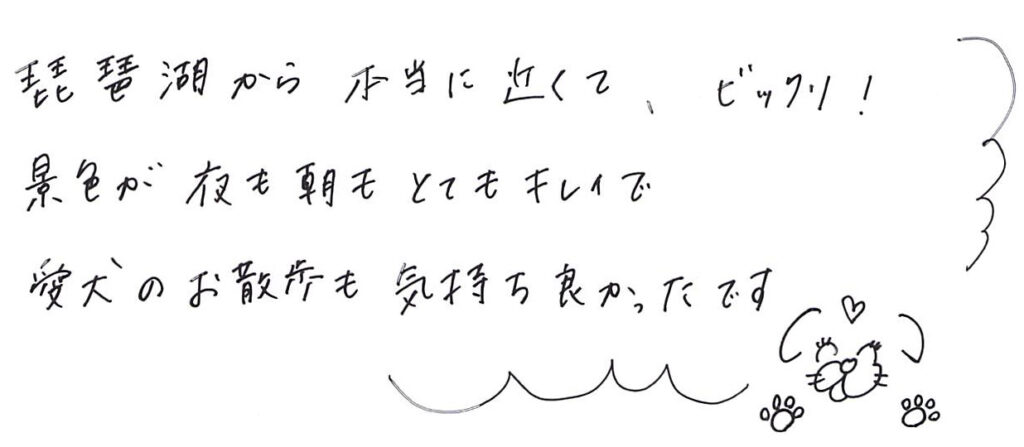 琵琶湖から 本当に 近くて、 ビックリ!
景色が 夜も朝も とてもキレイで
愛犬のお散歩も 気持ち良かったです